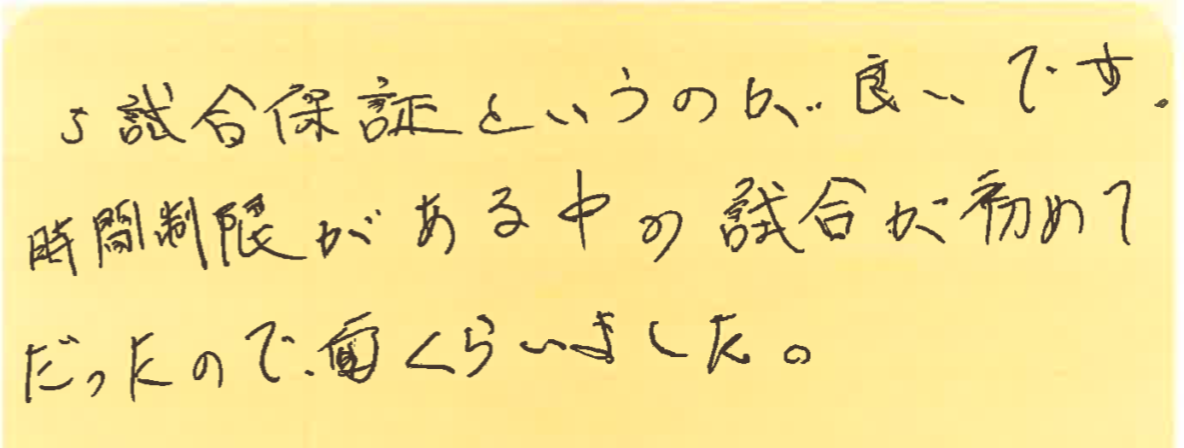 5試合保証というのが良いです。
時間制限がある中の試合が初めて
だったので面くらいました。